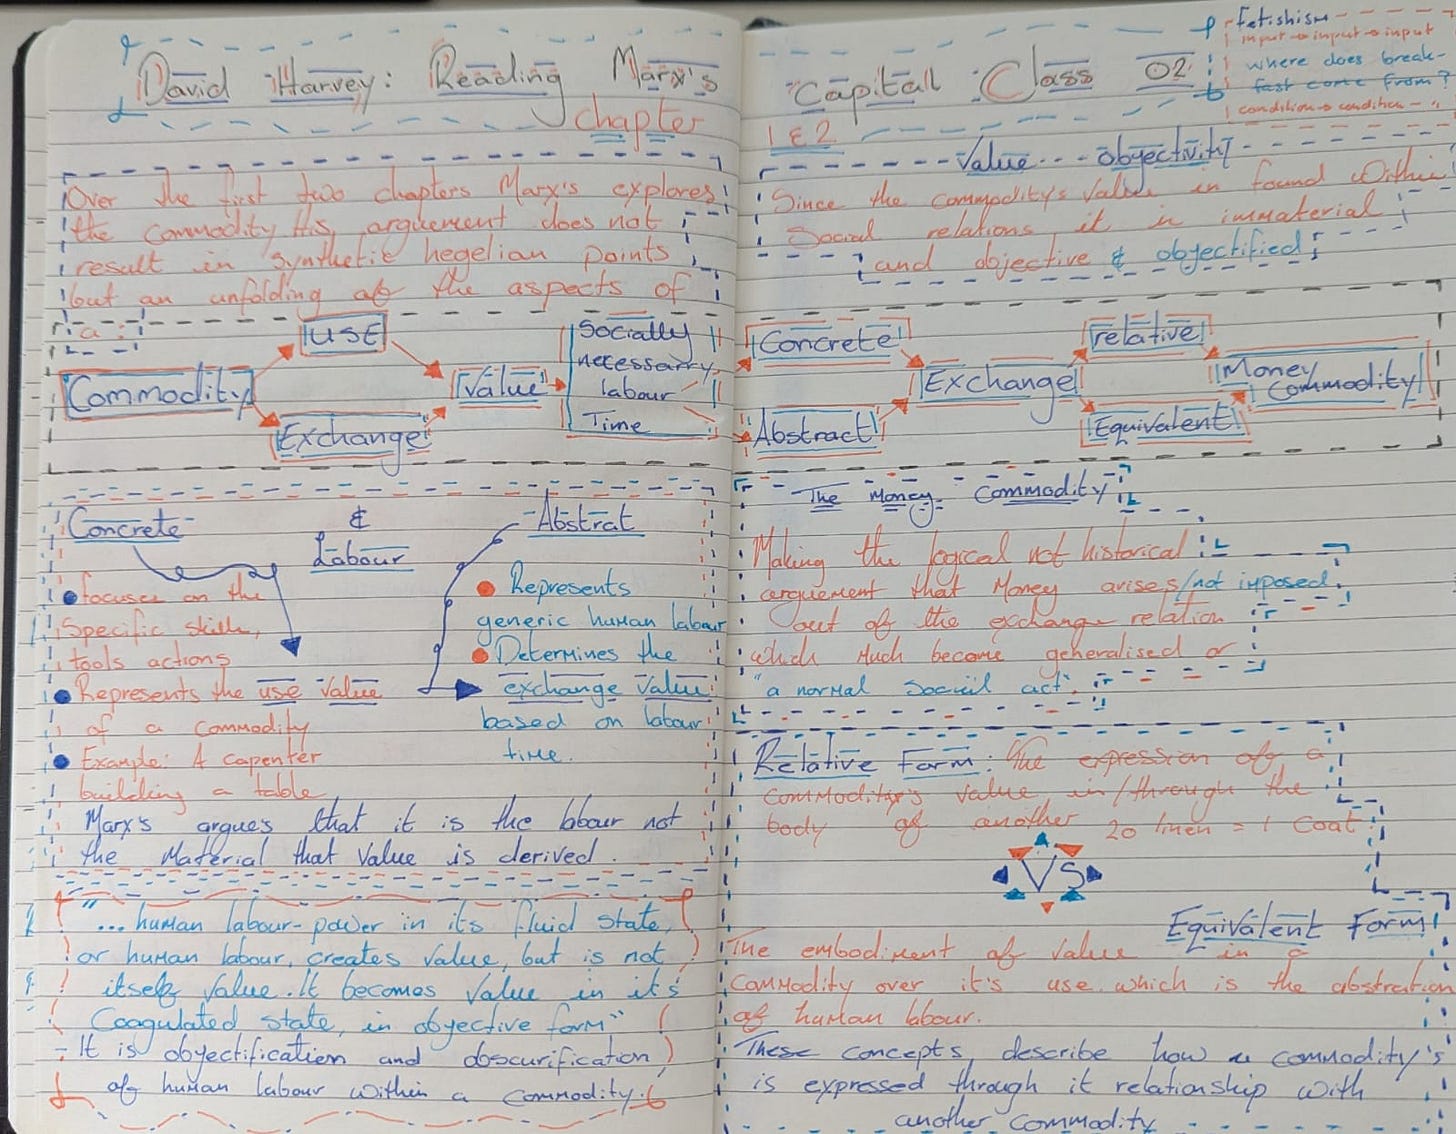 David Harvey: Reading Marx's
Capital Class 02
chapter
1 & 2
Over the first two chapters Marx's explores
the commodity His, arguement does not
result in synthetic hegelian points
but an unfolding of the aspects of
a :
Commodity
Use
Exchange
Value
Socially
necessary
labour
Time
Concrete
Abstract
Exchange
relative
Equivalent
Money
Commodity
Concrete & Abstrat
Labour
focuses on the
specific skills,
tools actions
Represents the use value
of a commodity
Example: A capenter
building a table
Represents
generic human labour
Determines the
exchange value
based on labour
time.
Marx's argues that it is the labour not
the Material that value is derived.
"...human labour-power in its fluid state,
or human labour, creates value, but is not
itself value. It becomes value in it's
Coagulated state, in objective form"
- It is objectification and obscurification
of human labour within a commodity.
fetishism
input → input → input
where does break-
fast come from?
condition → condition - "
Value objectivity
Since the commodity's value in found within
Social relations, it in immaterial
and objective & objectified
The Money Commodity
Making the logical not historical
arguement that Money arises/not imposed
out of the exchange relation
which Much become generalised or
"a normal social act".
Relative form: The expression of a
commoditys's value in/through the
body of another 20 linen = 1 Coat
VS
Equivalent Form
The embodiment of value in a
Commodity over it's use which is the abstration
of human labour.
These concepts, describe how a commodity's
is expressed through it relationship with
another commodity